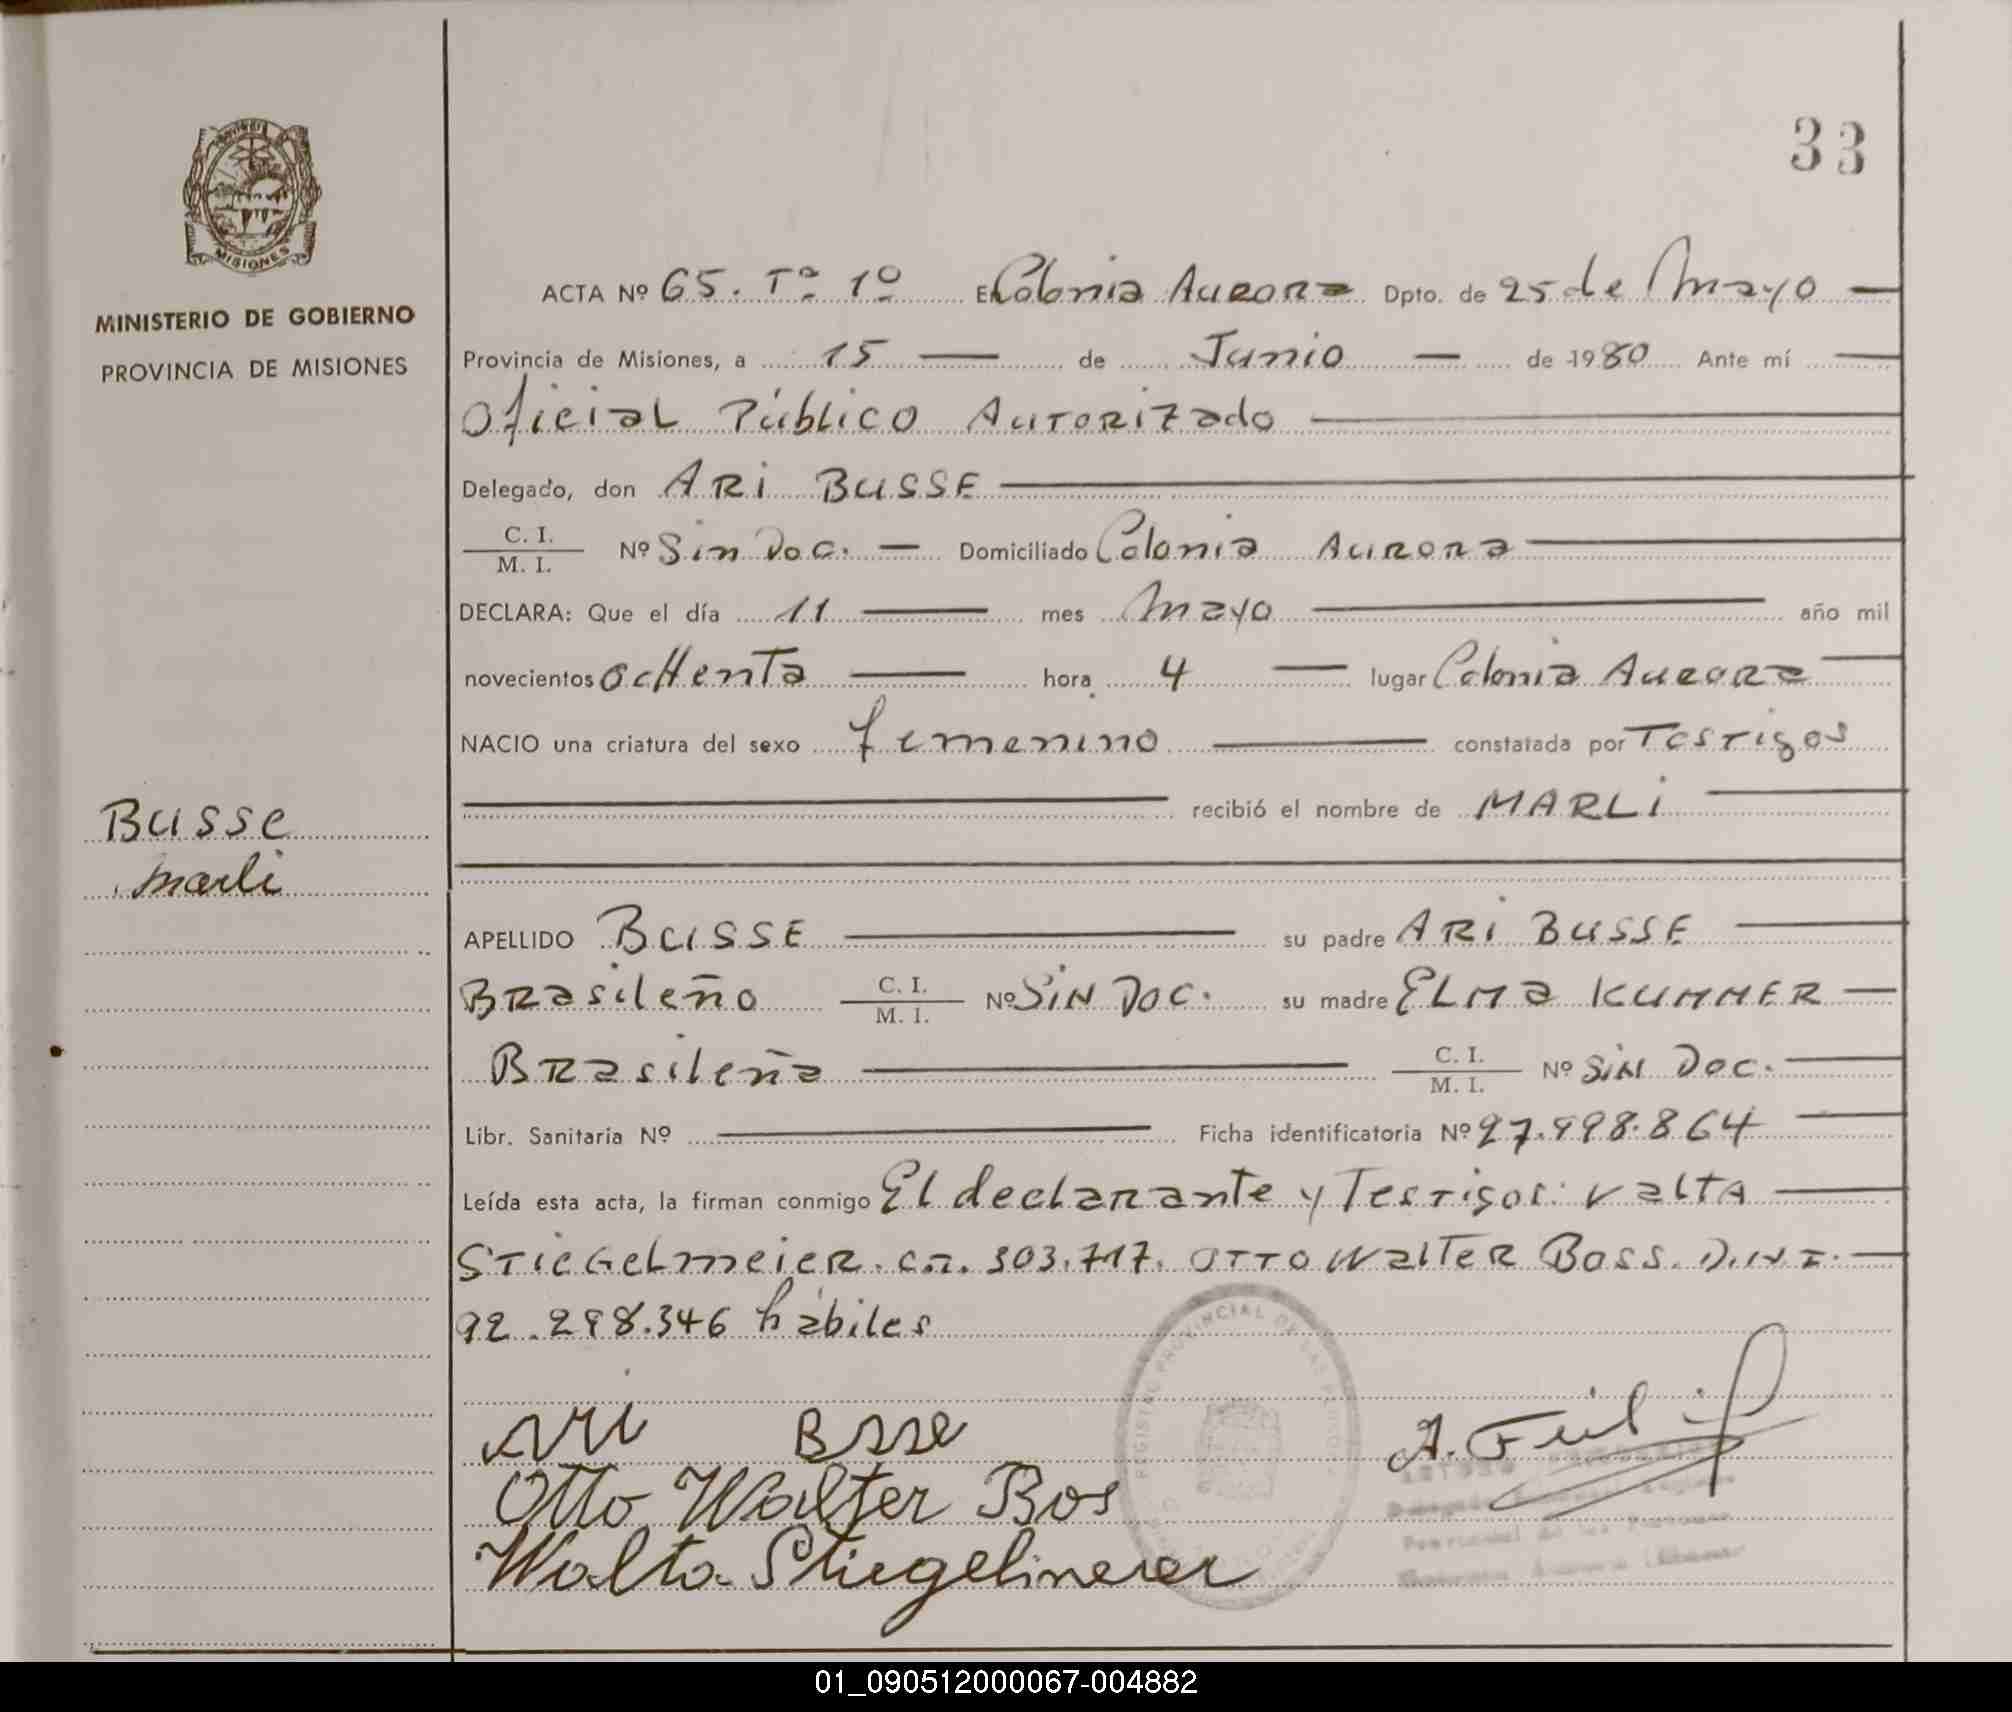 33
MISIONES
MINISTERIO DE GOBIERNO
PROVINCIA DE MISIONES
ACTA Nº 65. Tº 1º En Colonia Aurora Dpto. de 25 de Mayo
Provincia de Misiones, a 15 de Junio de 1980 Ante mí
Oficial Público Autorizado
Delegado, don ARI BUSSE
C. I.
M. I. Nº Sin Doc. Domiciliado Colonia Aurora
DECLARA: Que el día 11 mes Mayo año mil
novecientos ochenta hora 4 lugar Colonia Aurora
NACIO una criatura del sexo femenino constatada por Testigos
recibió el nombre de MARLI
Busse
Marli
APELLIDO BUSSE su padre ARI BUSSE
Brasileño C. I.
M. I. Nº SIN DOC. su madre ELMA KUMMER
Brasileña C. I.
M. I. Nº SIN DOC.
Libr. Sanitaria Nº Ficha identificatoria Nº 27.998.864
Leída esta acta, la firman conmigo El declarante y Testigos: Valta
STIEGELMEIER. 303.717. OTTO WALTER BOSS. D.N.I.
92.298.346 hábiles
Ari Bsse
Otto Walter Bos
Walta Stiegelimeier
REGISTRO PROVINCIAL DE LAS PERSONAS
01_090512000067-004882